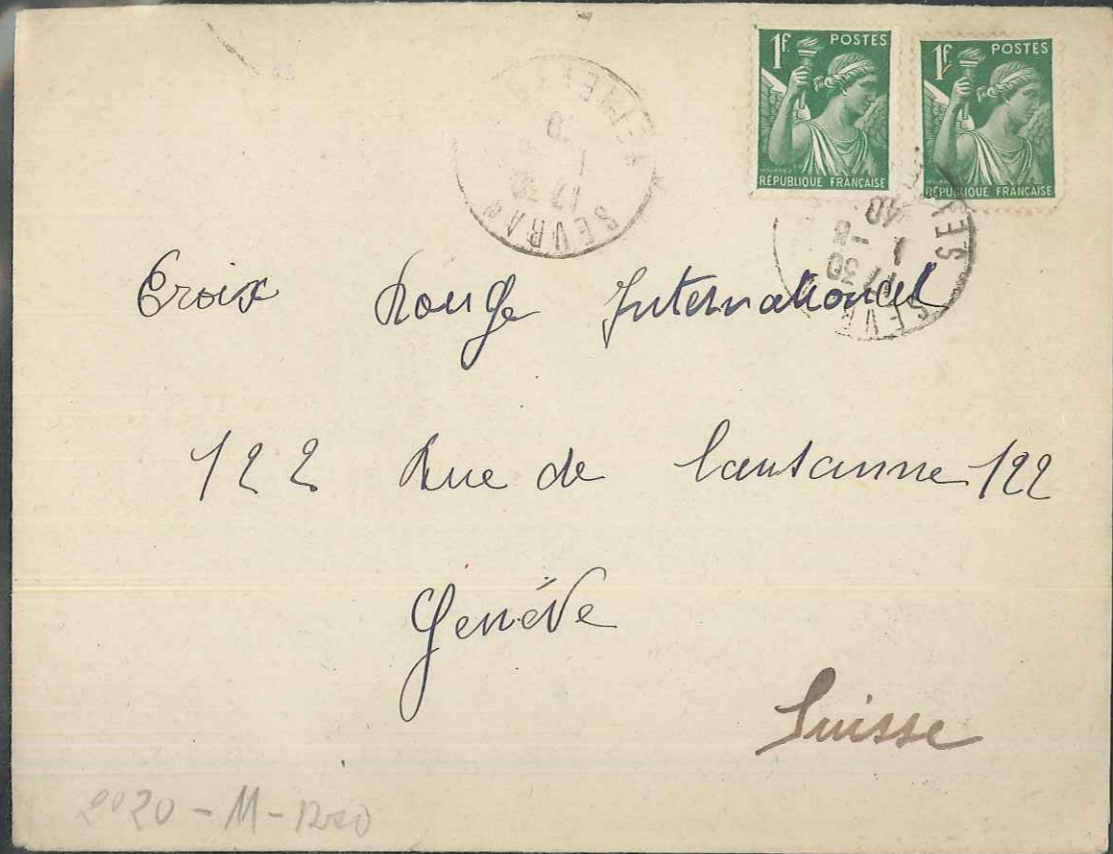 1F. POSTES
RÉPUBLIQUE FRANÇAISE
1F. POSTES
RÉPUBLIQUE FRANÇAISE
SEVRAN
17 30
1
SEVRAN
17 30
1 -8
40
Croix Rouge Internationael
122 Rue de Lausanne 122
Genève
Suisse